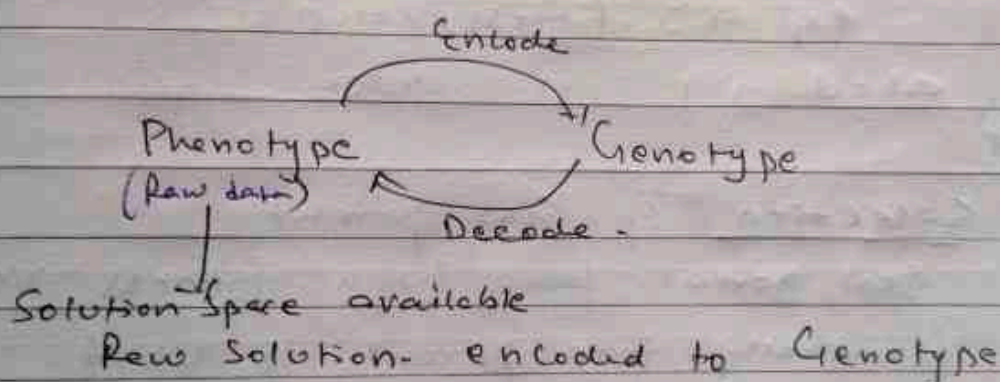 Encode
Phenotype Genotype
(Raw data)
Decode -
Solution Space available
Raw Solution- encoded to Genotype